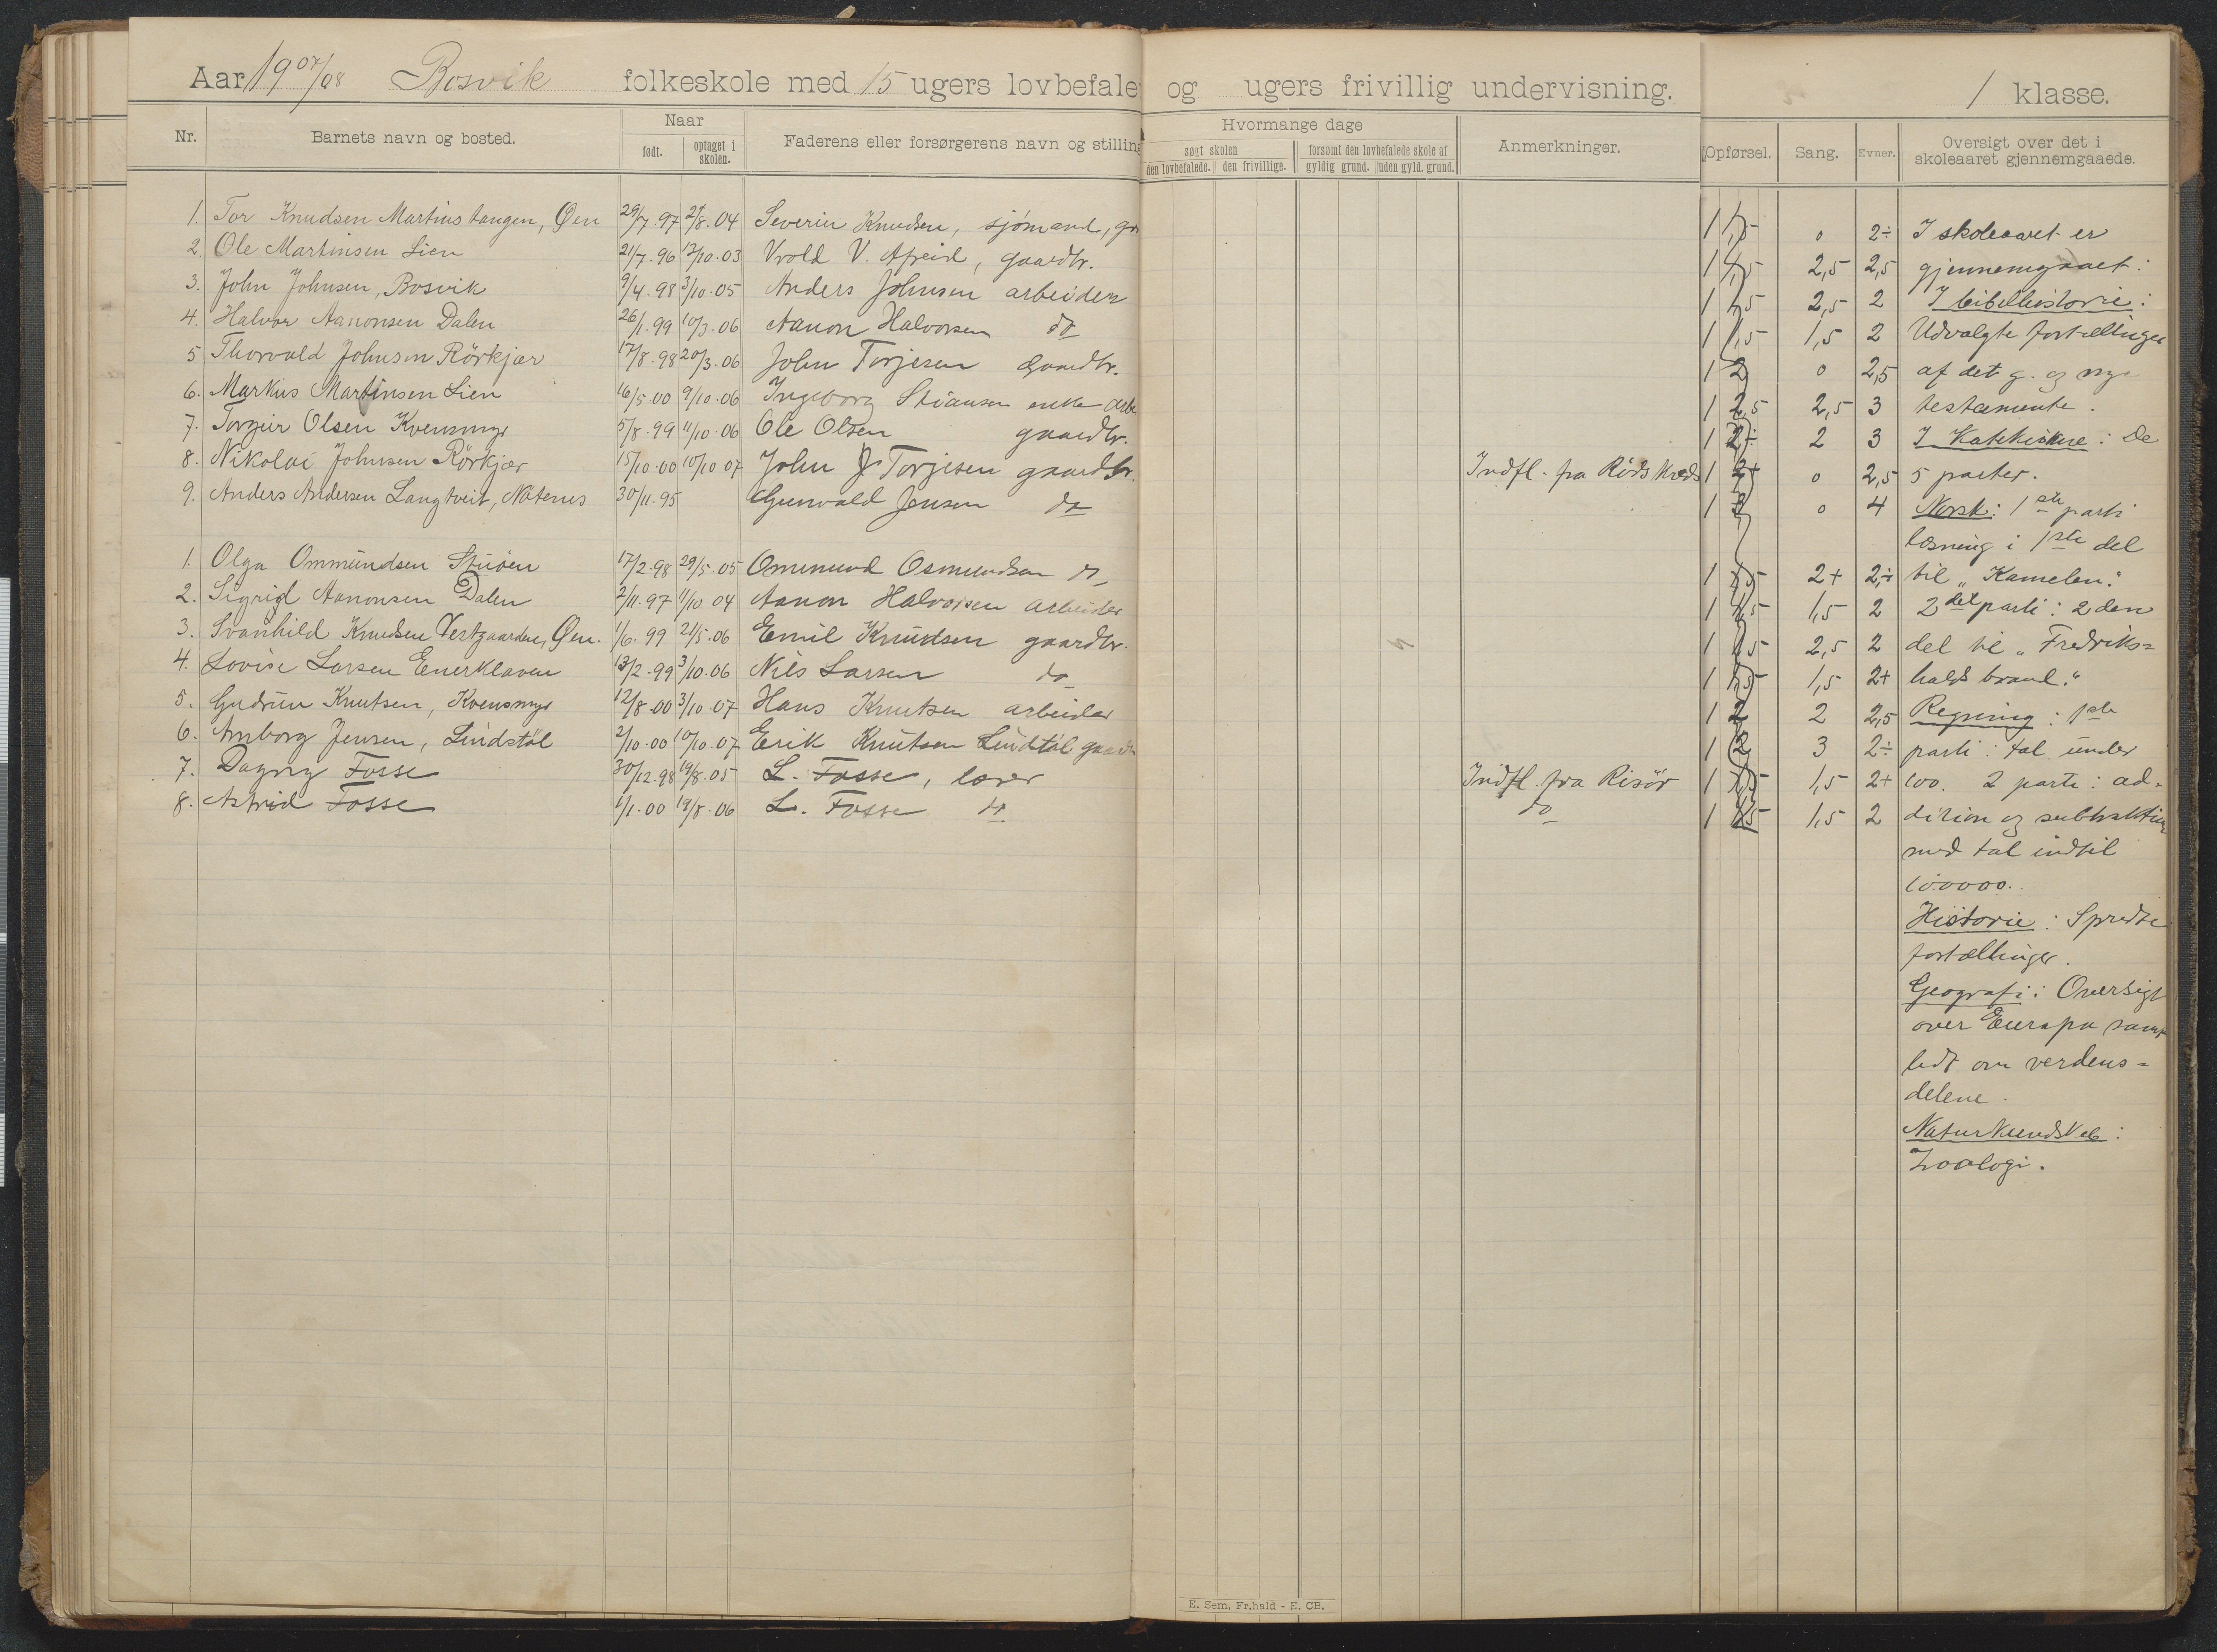 Aar 1907/08 Bosvik folkeskole med 15 ugers lovbefale og ugers frivillig undervisning. 1 klasse.
Nr. Barnets navn og bosted. Naar født. optaget i skolen. Faderens eller forsørgerens navn og stilling
Hvormange dage søgt skolen den lovbefalede. den frivillige. forsømt den lovbefalede skole af gyldig grund. uden gyld. grund. Anmerkninger.
Opførsel. Sang. Evner. Oversigt over det i skoleaaret gjennemgaaede.
1. Tor Knudsen Martinstangen, Øen 29/7.97 2/8.04 Severin Knudsen, sjømand, 1 1,5 0 2÷ I skoleaaret er
2. Ole Martinsen Lien 21/7.96 17/10.03 Vrold V. gaardbr. 1 1,5 2,5 2,5 gjennemgaaet:
3. John Johnsen, Bosvik 9/4.98 3/10.05 Anders Johnsen arbeider 1 1,5 2,5 2 I bibelhistorie:
4. Halvor Aanonsen Dalen 26/1.99 10/3.06 Aanon Halvorsen do 1 1,5 1,5 2 Udvalgte fortællinger
5 Thorvald Johnsen Rörkjær 17/8.98 20/3.06 John Torjesen Gaardbr. 1 2 0 2,5 af det g. og nye
6. Markus Martinsen Lien 16/5.00 9/10.06 Ingeborg Stiansen enke 1 2,5 2,5 3 testamente.
7. Torgeir Olsen Kvensmyr 5/8.99 11/10.06 Ole Olsen gaardbr. 1 2÷ 2 3 I Katekisme: De
8. Nikolai Johnsen Rörkjær 15/10.00 10/10 07 John J Torjesen gaardbr. Indfl. fra Röds Kreds 1 2+ 0 2,5 5 parter.
9. Anders Andersen Langtveit, Nätenes 30/11.95 Gunvald Jensen do 1 3 0 4 Norsk: 1ste parti
læsning i 1ste del
1. Olga Ommundsen Stüöen 17/2.98 29/5.05 Ommund Osmundsen do 1 1,5 2+ 2÷ til "Kamelen".
2. Sigrid Aanonsen Dalen 2/11.97 1/10 04 Aanon Halvorsen arbeider 1 1,5 1,5 2 2det parti: 2den
3. Svanhild Knudsen Vestgaarden, Øen. 1/6.99 21/5.06 Emil Knudsen gaardbr. 1 1,5 2,5 2 del til "Fredriks=
4. Lovise Larsen Enerklaven 13/2.99 3/10.06 Nils Larsen do 1 1,5 1,5 2+ halds brand."
5. Gudrun Knutsen, Kvensmyr 12/8.00 3/10.07 Hans Knutsen arbeider 1 2 2 2,5 Regning: 1ste
6. Amborg Jensen, Lindstöl 2/10.00 10/10.07 Erik Knutsen Lindtöl 1 2 3 2÷ parti: tal under
7. Dagny Fosse 30/12.98 19/8.05 L. Fosse, lærer Indfl. fra Risör 1 1,5 1,5 2+ 100. 2 parti: ad-
8. Astrid Fosse 1/1.00 19/8.06 L. Fosse do do 1 1,5 1,5 2 dition og subtraktion
med tal indtil
100000.
Historie: Spredte
fortællinger.
Geografi: Oversigt
over Europa samt
lidt om verdens=
delene.
Naturkundskab:
Zoologi.
E. Sem, Fr.hald - E. CB.